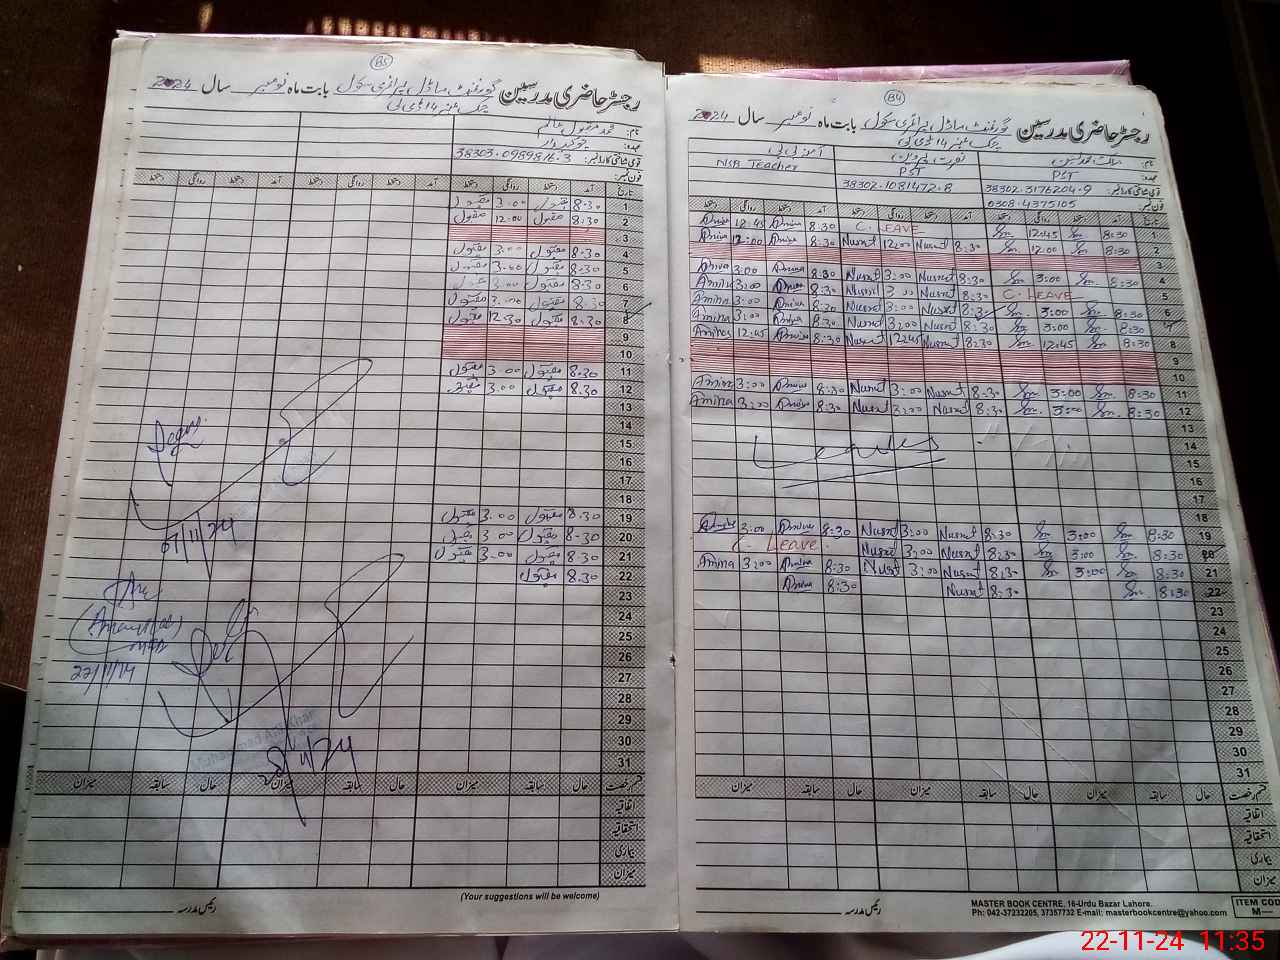 B5
رجسٹر حاضری مدرسین گورنمنٹ ماڈل پرائمری سکول بابت ماہ نومبر سال 2024
چک نمبر 14 ڈی بی
نام:
عہدہ: چوکیدار
قومی شناختی کارڈ نمبر: 38303-0989816-3
فون نمبر:
تاریخ آمد دستخط روانگی دستخط آمد دستخط روانگی دستخط آمد دستخط روانگی دستخط
1 8:30 مقبول 3:00 مقبول
2 8:30 مقبول 12:00 مقبول
3
4 8:30 مقبول 3:00 مقبول
5 8:30 مقبول 3:00 مقبول
6 8:30 مقبول 3:00 مقبول
7 8:30 مقبول 3:00 مقبول
8 8:30 مقبول 12:30 مقبول
9
10
11 8:30 مقبول 3:00 مقبول
12 8:30 مقبول 3:00 مقبول
13
14
15
16
17
18
19 8:30 مقبول 3:00 مقبول
20 8:30 مقبول 3:00 مقبول
21 8:30 مقبول 3:00 مقبول
22 8:30 مقبول
23
24
25
26
27
28
29
30
31
22/11/24
قسم رخصت حال سابقہ میزان حال سابقہ میزان حال سابقہ میزان
اتفاقیہ
استحقاقیہ
بیماری
میزان
(Your suggestions will be welcome)
رئیس مدرسہ
B4
رجسٹر حاضری مدرسین گورنمنٹ ماڈل پرائمری سکول بابت ماہ نومبر سال 2024
چک نمبر 14 ڈی بی
نام: نصرت پروین آمنہ بی بی
عہدہ: PST PST NSB Teacher
قومی شناختی کارڈ نمبر: 38302-3176204-9 38302-1081472-8
فون نمبر: 0308-4375105
تاریخ آمد دستخط روانگی دستخط آمد دستخط روانگی دستخط آمد دستخط روانگی دستخط
1 8:30 12:45 C. LEAVE 8:30 Amina 12:45 Amina
2 8:30 12:00 8:30 Nusrat 12:00 Nusrat 8:30 Amina 12:00 Amina
3
4 8:30 3:00 8:30 Nusrat 3:00 Nusrat 8:30 Amina 3:00 Amina
5 C. LEAVE 8:30 Nusrat 3:00 Nusrat 8:30 Amina 3:00 Amina
6 8:30 3:00 8:30 Nusrat 3:00 Nusrat 8:30 Amina 3:00 Amina
7 8:30 3:00 8:30 Nusrat 3:00 Nusrat 8:30 Amina 3:00 Amina
8 8:30 12:45 8:30 Nusrat 12:45 Nusrat 8:30 Amina 12:45 Amina
9
10
11 8:30 3:00 8:30 Nusrat 3:00 Nusrat 8:30 Amina 3:00 Amina
12 8:30 3:00 8:30 Nusrat 3:00 Nusrat 8:30 Amina 3:00 Amina
13
14
Leaves
15
16
17
18
19 8:30 3:00 8:30 Nusrat 3:00 Nusrat 8:30 Amina 3:00 Amina
20 8:30 3:00 8:30 Nusrat 3:00 Nusrat C. Leave
21 8:30 3:00 8:30 Nusrat 3:00 Nusrat 8:30 Amina 3:00 Amina
22 8:30 8:30 Nusrat 8:30 Amina
23
24
25
26
27
28
29
30
31
قسم رخصت حال سابقہ میزان حال سابقہ میزان حال سابقہ میزان
اتفاقیہ
استحقاقیہ
بیماری
میزان
رئیس مدرسہ
MASTER BOOK CENTRE, 16-Urdu Bazar Lahore.
Ph: 042-37232205, 37357732 E-mail: masterbookcentre@yahoo.com
ITEM COD
M—
22-11-24 11:35